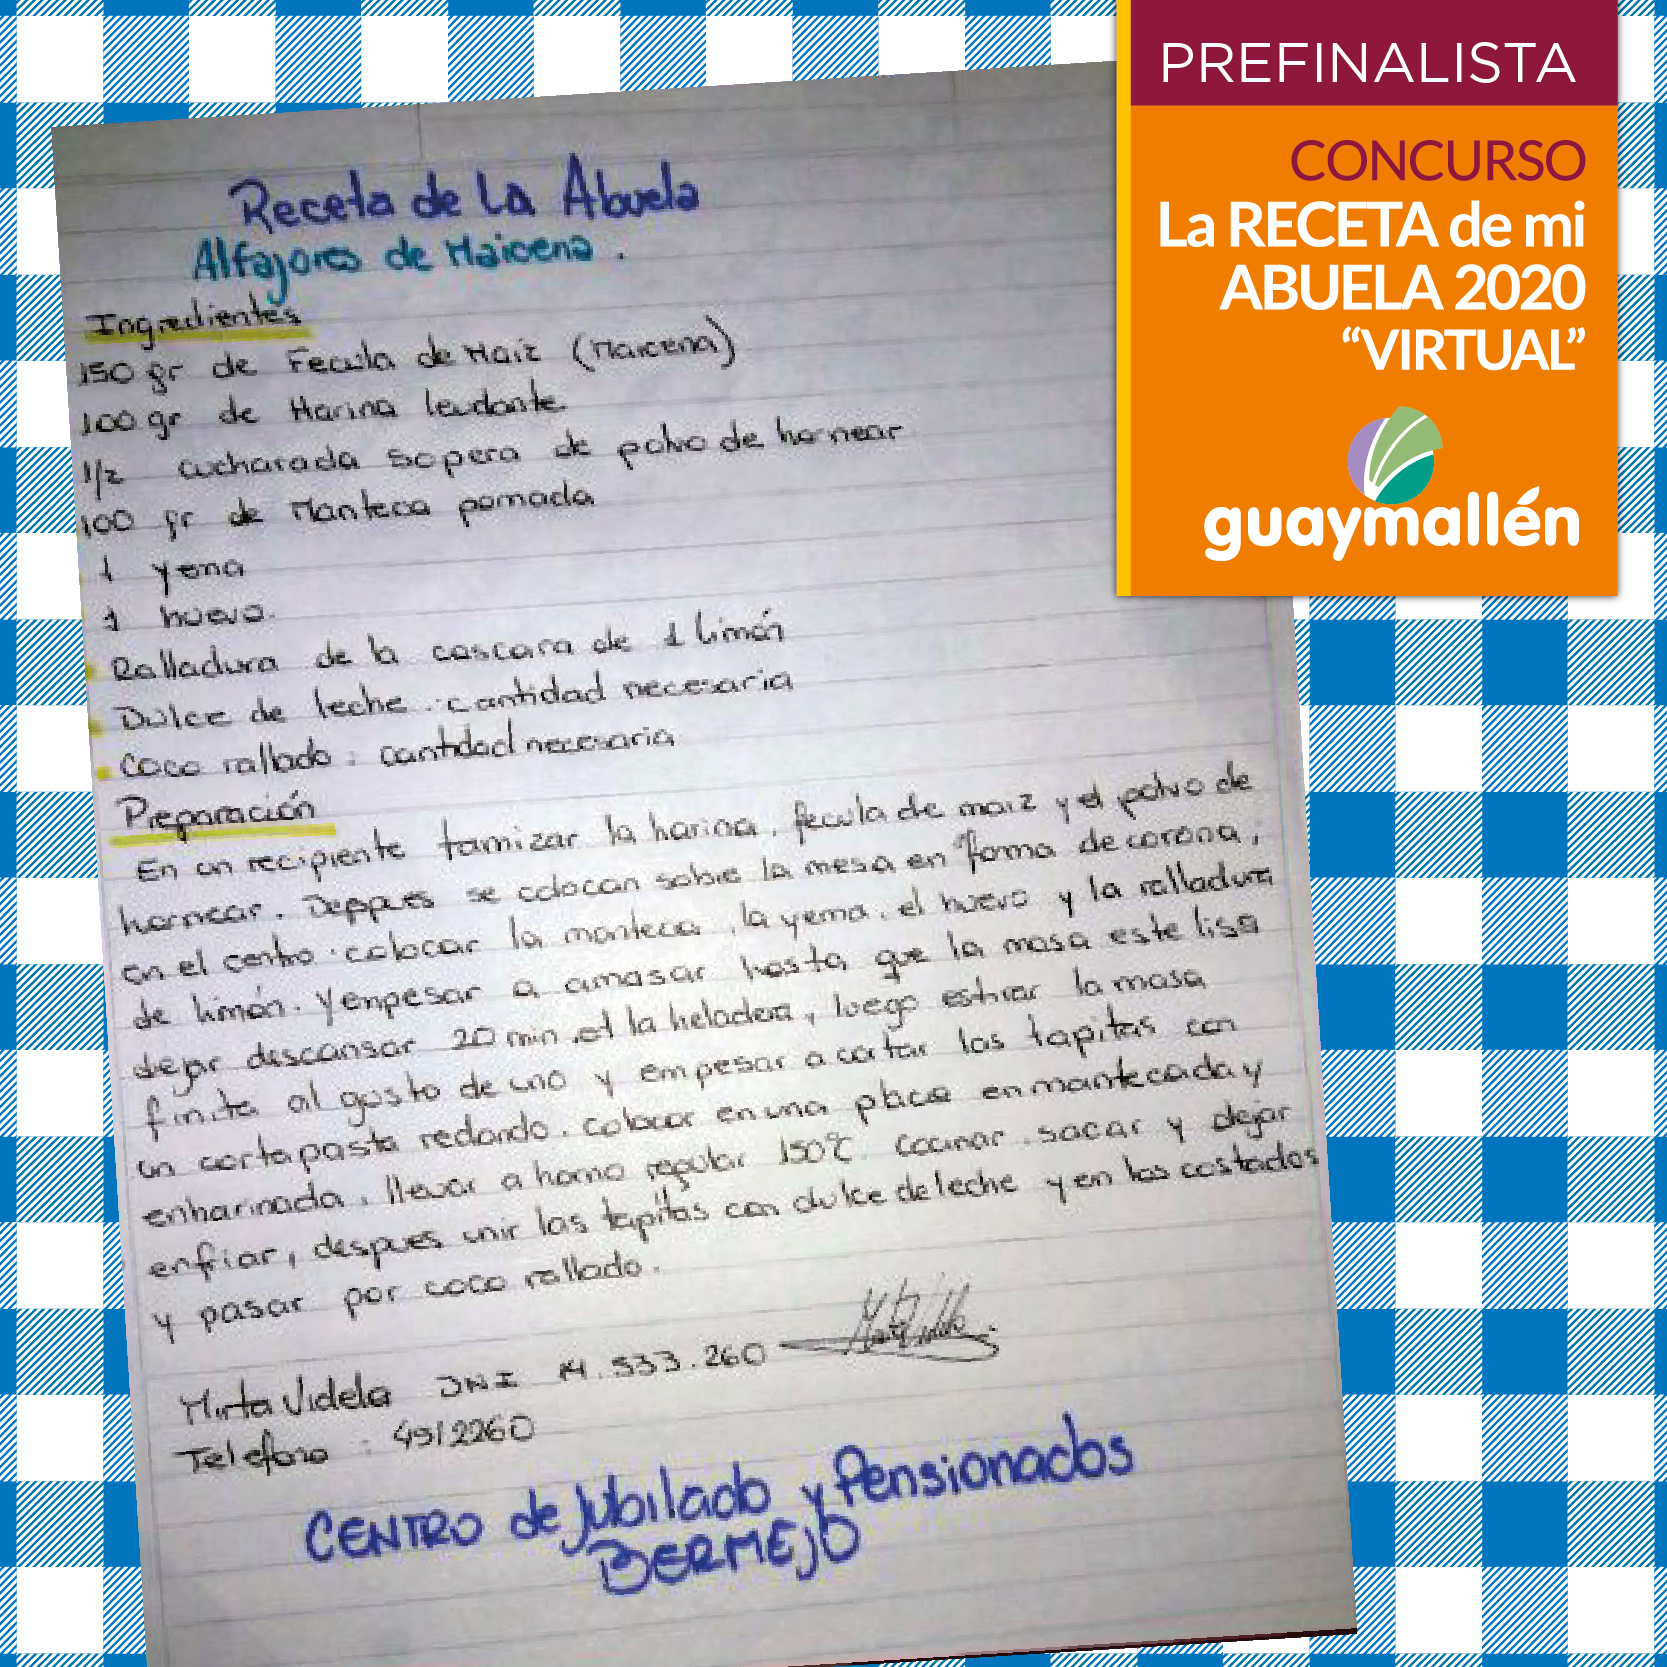 PREFINALISTA
CONCURSO
La RECETA de mi
ABUELA 2020
“VIRTUAL”
guaymallén
Receta de La Abuela
Alfajores de Maicena.
Ingredientes
150 gr de Fecula de Maiz (Maicena)
100 gr de Harina leudante
1/2 cucharada sopera de polvo de hornear
100 gr de Manteca pomada
1 yema
1 huevo.
Ralladura de la cascara de 1 limón
Dulce de leche: cantidad necesaria
Coco rallado: cantidad necesaria
Preparación
En un recipiente tamizar la harina, fecula de maiz y el polvo de
hornear. Deppues se colocan sobre la mesa en forma de corona,
en el centro colocar la manteca, la yema, el huevo y la ralladura
de limón. y empesar a amasar hasta que la masa este lisa
dejar descansar 20 min en la heladera, luego estirar la masa
finita al gusto de uno y empesar a cortar las tapitas con
un cortapasta redondo. colocar en una placa enmantecada y
enharinada. llevar a horno regular 150°C cocinar. sacar y dejar
enfriar, despues unir las tapitas con dulce de leche y en los costados
y pasar por coco rallado.
Mirta Videla DNI 14.533.260
Telefono: 4912260
CENTRO de Jubilado y Pensionados
BERMEJO